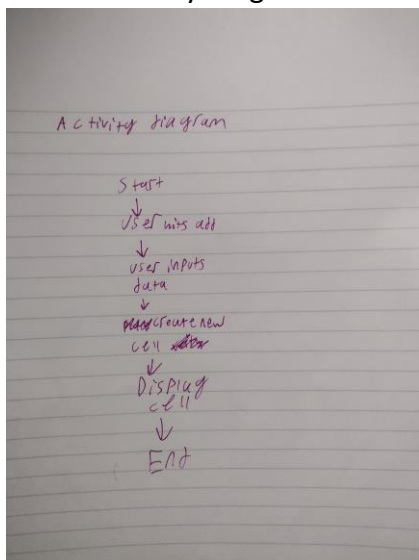 Activity diagram
Start
↓
User hits add
↓
user inputs
data
↓
create new
cell
↓
Display
cell
↓
End